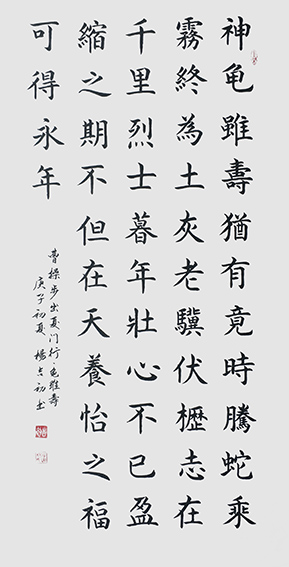 神龟雖壽猶有竟時騰蛇乘
霧終為土灰老驥伏櫪志在
千里烈士暮年壯心不已盈
縮之期不但在天養怡之福
可得永年
曹操步出夏门行·龟雖寿
庚子初夏